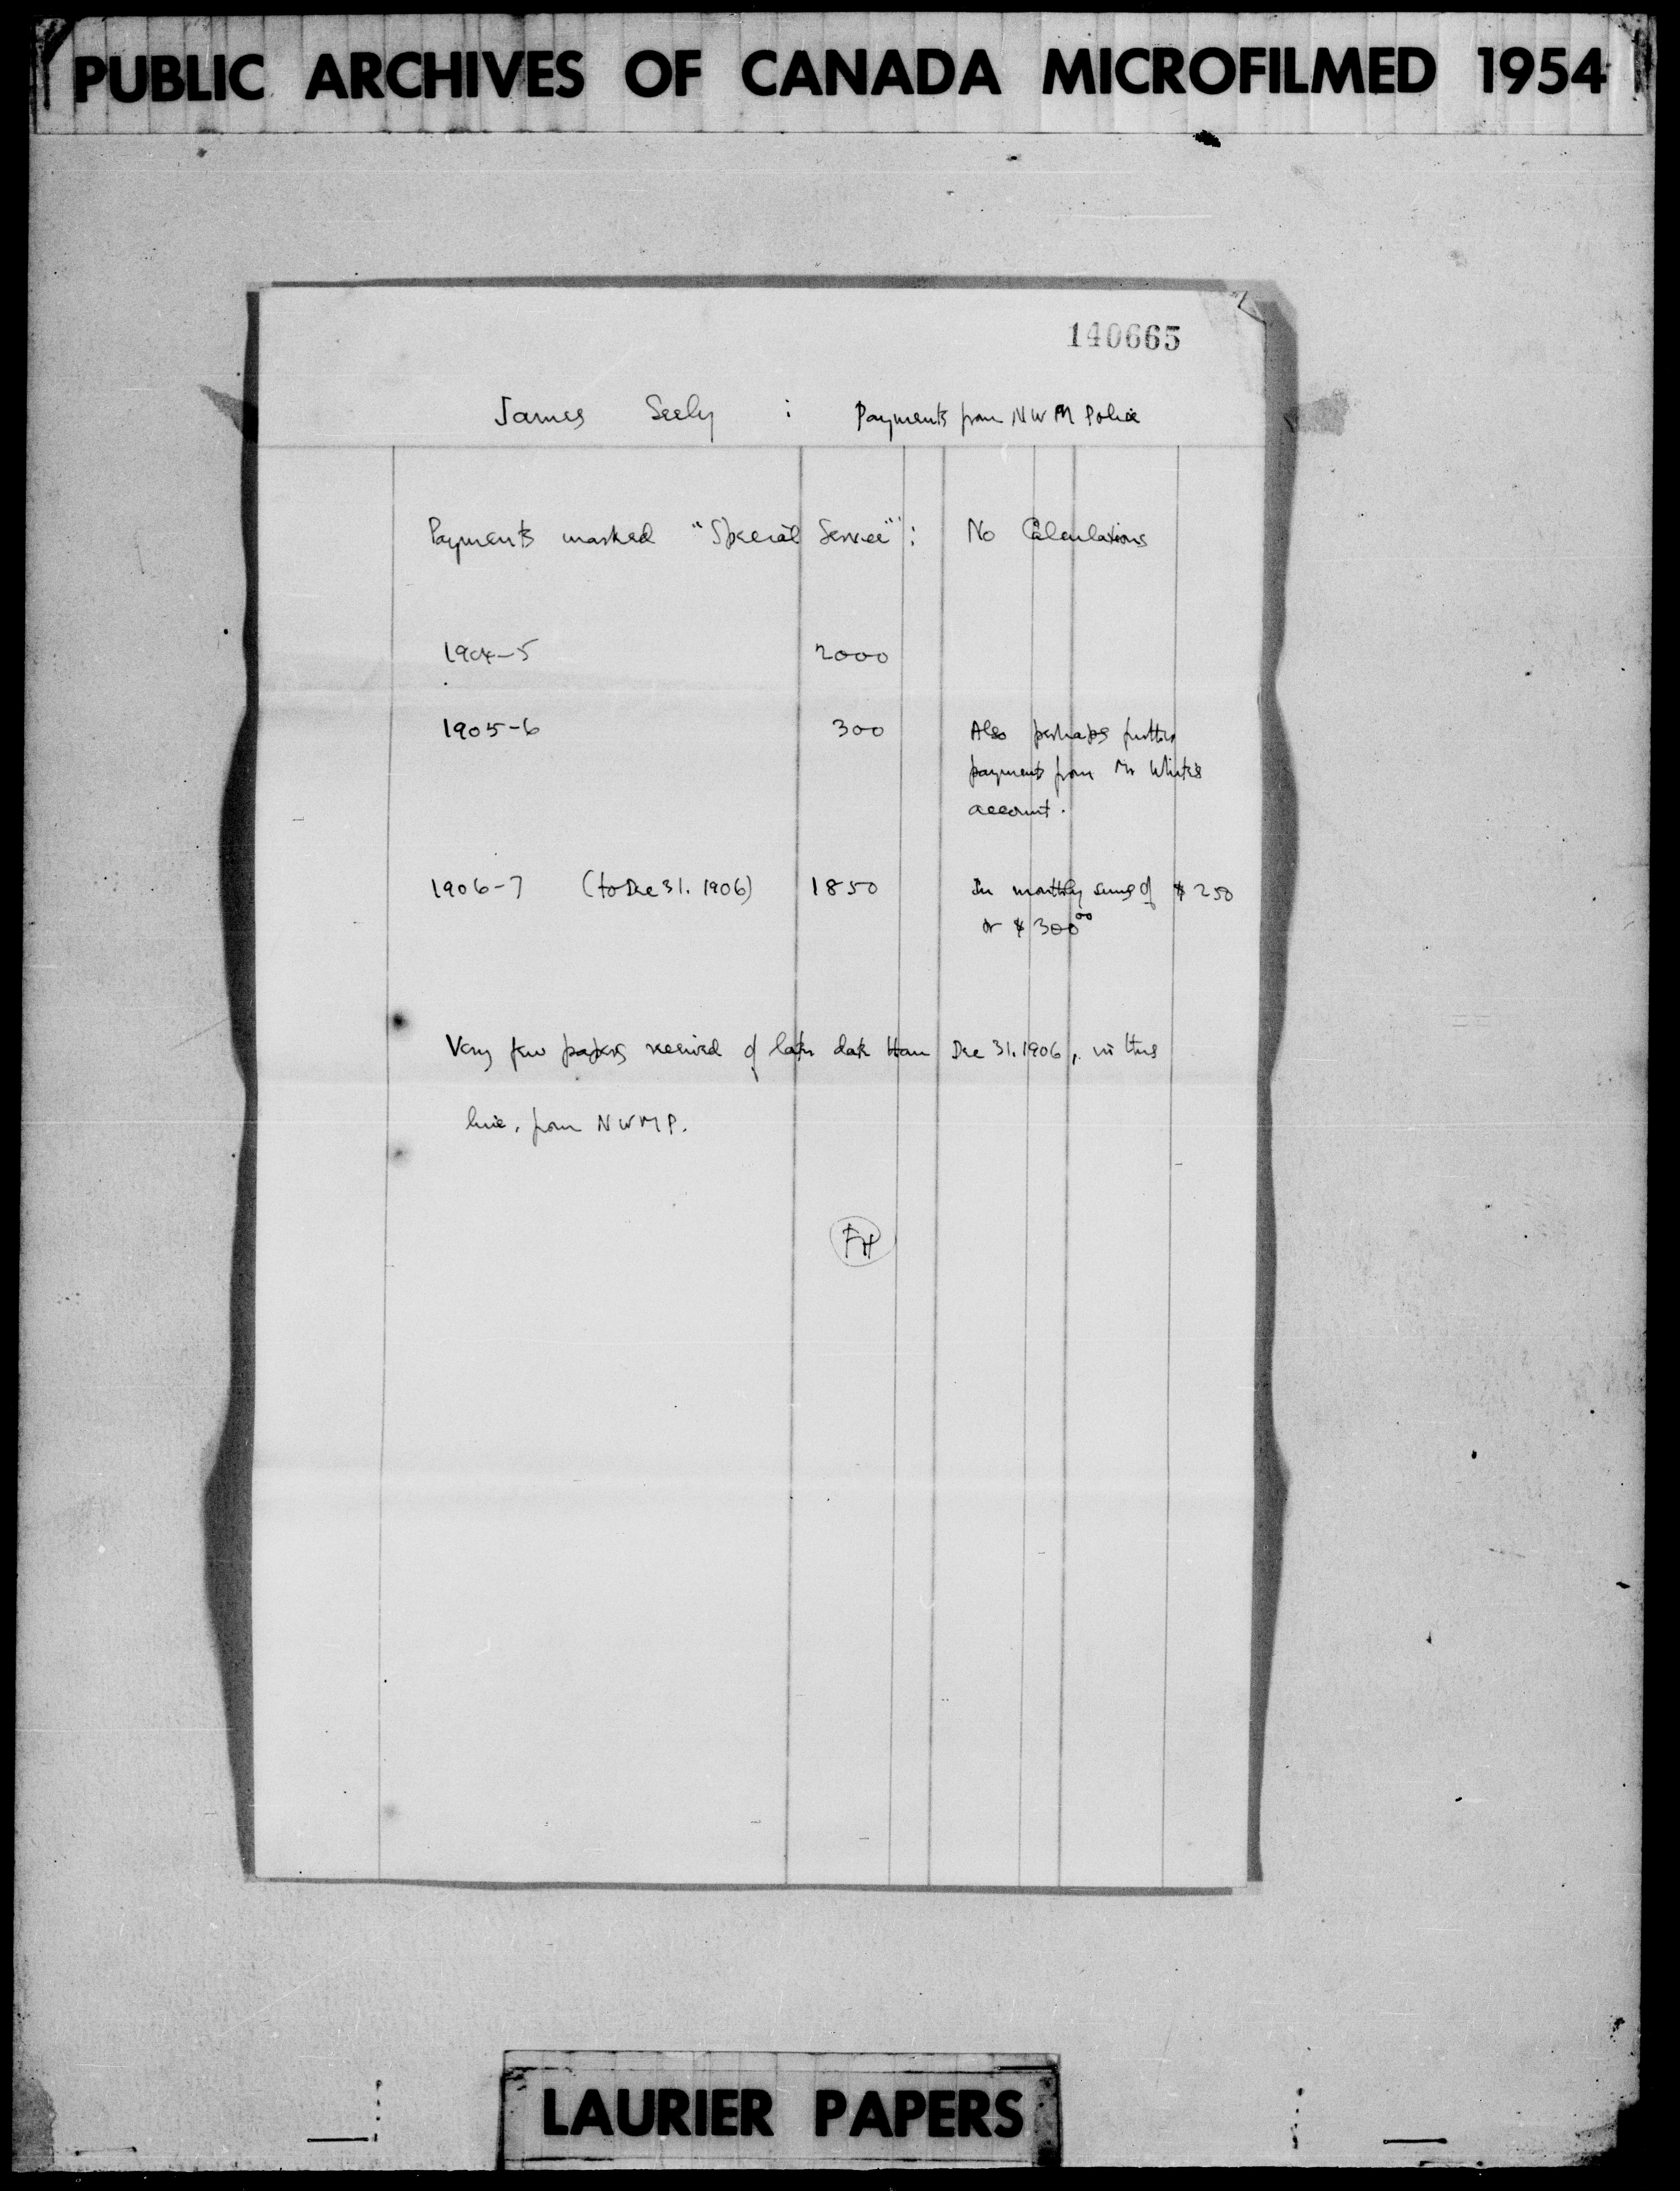 PUBLIC ARCHIVES OF CANADA MICROFILMED 1954
140665
James Seely : Payments from NWM Police
Payments marked "Special Service" : No Calculations
1904-5 2000
1905-6 300 Also perhaps further
payments from Mr White's
account.
1906-7 (to Dec 31. 1906) 1850 In monthly sums of $250
or $300 00
Very few papers received of later date than Dec 31. 1906, in this
line, from NWMP.
FH
LAURIER PAPERS